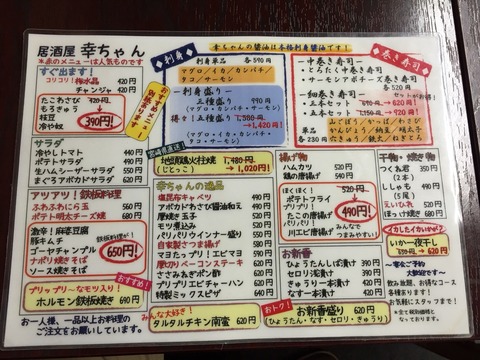 居酒屋 幸ちゃん
※赤のメニューは人気ものです
すぐ出ます!
コリコリ!梅水晶 420円
チャンジャ 420円
たこわさび
もろきゅう
枝豆
冷や奴
390円!
サラダ
冷やしトマト 420円
ポテトサラダ 420円
生ハムシーザーサラダ 690円
まぐろアボカドサラダ 690円
アツアツ!鉄板料理
ふわふわにら玉 590円
ポテト明太チーズ焼 690円
激辛!麻婆豆腐
豚キムチ
ゴーヤチャンプル
ナポリ焼きそば
ソース焼きそば
650円!
プリップリーなモツ入り!
ホルモン鉄板焼き 690円
お一人様、一品以上お料理の
ご注文をお願いしています。
幸ちゃんの醤油は本格利身醤油です!
◆利身◆
単品 各590円
マグロ/イカ/カンパチ/
タコ/サーモン
利身盛り
三種盛り 990円
(マグロ・カンパチ・サーモン)
得々!五種盛り 1,580円
→1,420円!
(マグロ・イカ・カンパチ・
タコ・サーモン)
◆巻き寿司◆
中巻き寿司
・とろたく中巻き寿司
・サーモンアボチーズ巻き寿司
各520円
細巻き寿司
セットがお得!
三本セット 690円→620円!
五本セット 1,150円→920円!
単品 230円
こはだ/納豆/明太子
きゅうり/鉄火/ねぎとろ
宮崎県直送!
地頭鶏火柱焼
(じとっこ)
1,480円
→1,020円!
幸ちゃんの逸品
塩昆布キャベツ 420円
アボカドわさび醤油和え 520円
厚焼き玉子 520円
モツ煮込み 520円
パリパリウインナー盛り 590円
自家製さつま揚げ 590円
マヨたっぷり!エビマヨ 590円
厚切りベーコンステーキ 620円
せせみねぎポン酢 620円
プリップリエビチャーハン 620円
特製ミックスピザ 690円
みんな大好き!
タルタルチキン南蛮 620円
揚げ物
ハムカツ 520円
鶏の唐揚げ 520円
ほくほく!
ポテトフライ
プリップリ!
たこの唐揚げ
川エビ唐揚げ
490円!
みんなで
つまみやすい!
お新香
ひょうたんしば漬け 390円
セロリ浅漬け 390円
きゅうり一本漬け 390円
なす一本漬け 420円
おトク!
お新香盛り 620円
(ひょうたん・なす・セロリ・きゅうり)
干物・焼き物
つくね(2本) 340円
ししゃも(5尾) 420円
えいひれ 520円
ほっけ焼き 690円
イカしたイカいかが?
いか一夜干し 590円
宴会ご予約
大歓迎です
飲み放題、お得なコース
各種あります!
お気軽にスタッフまで!